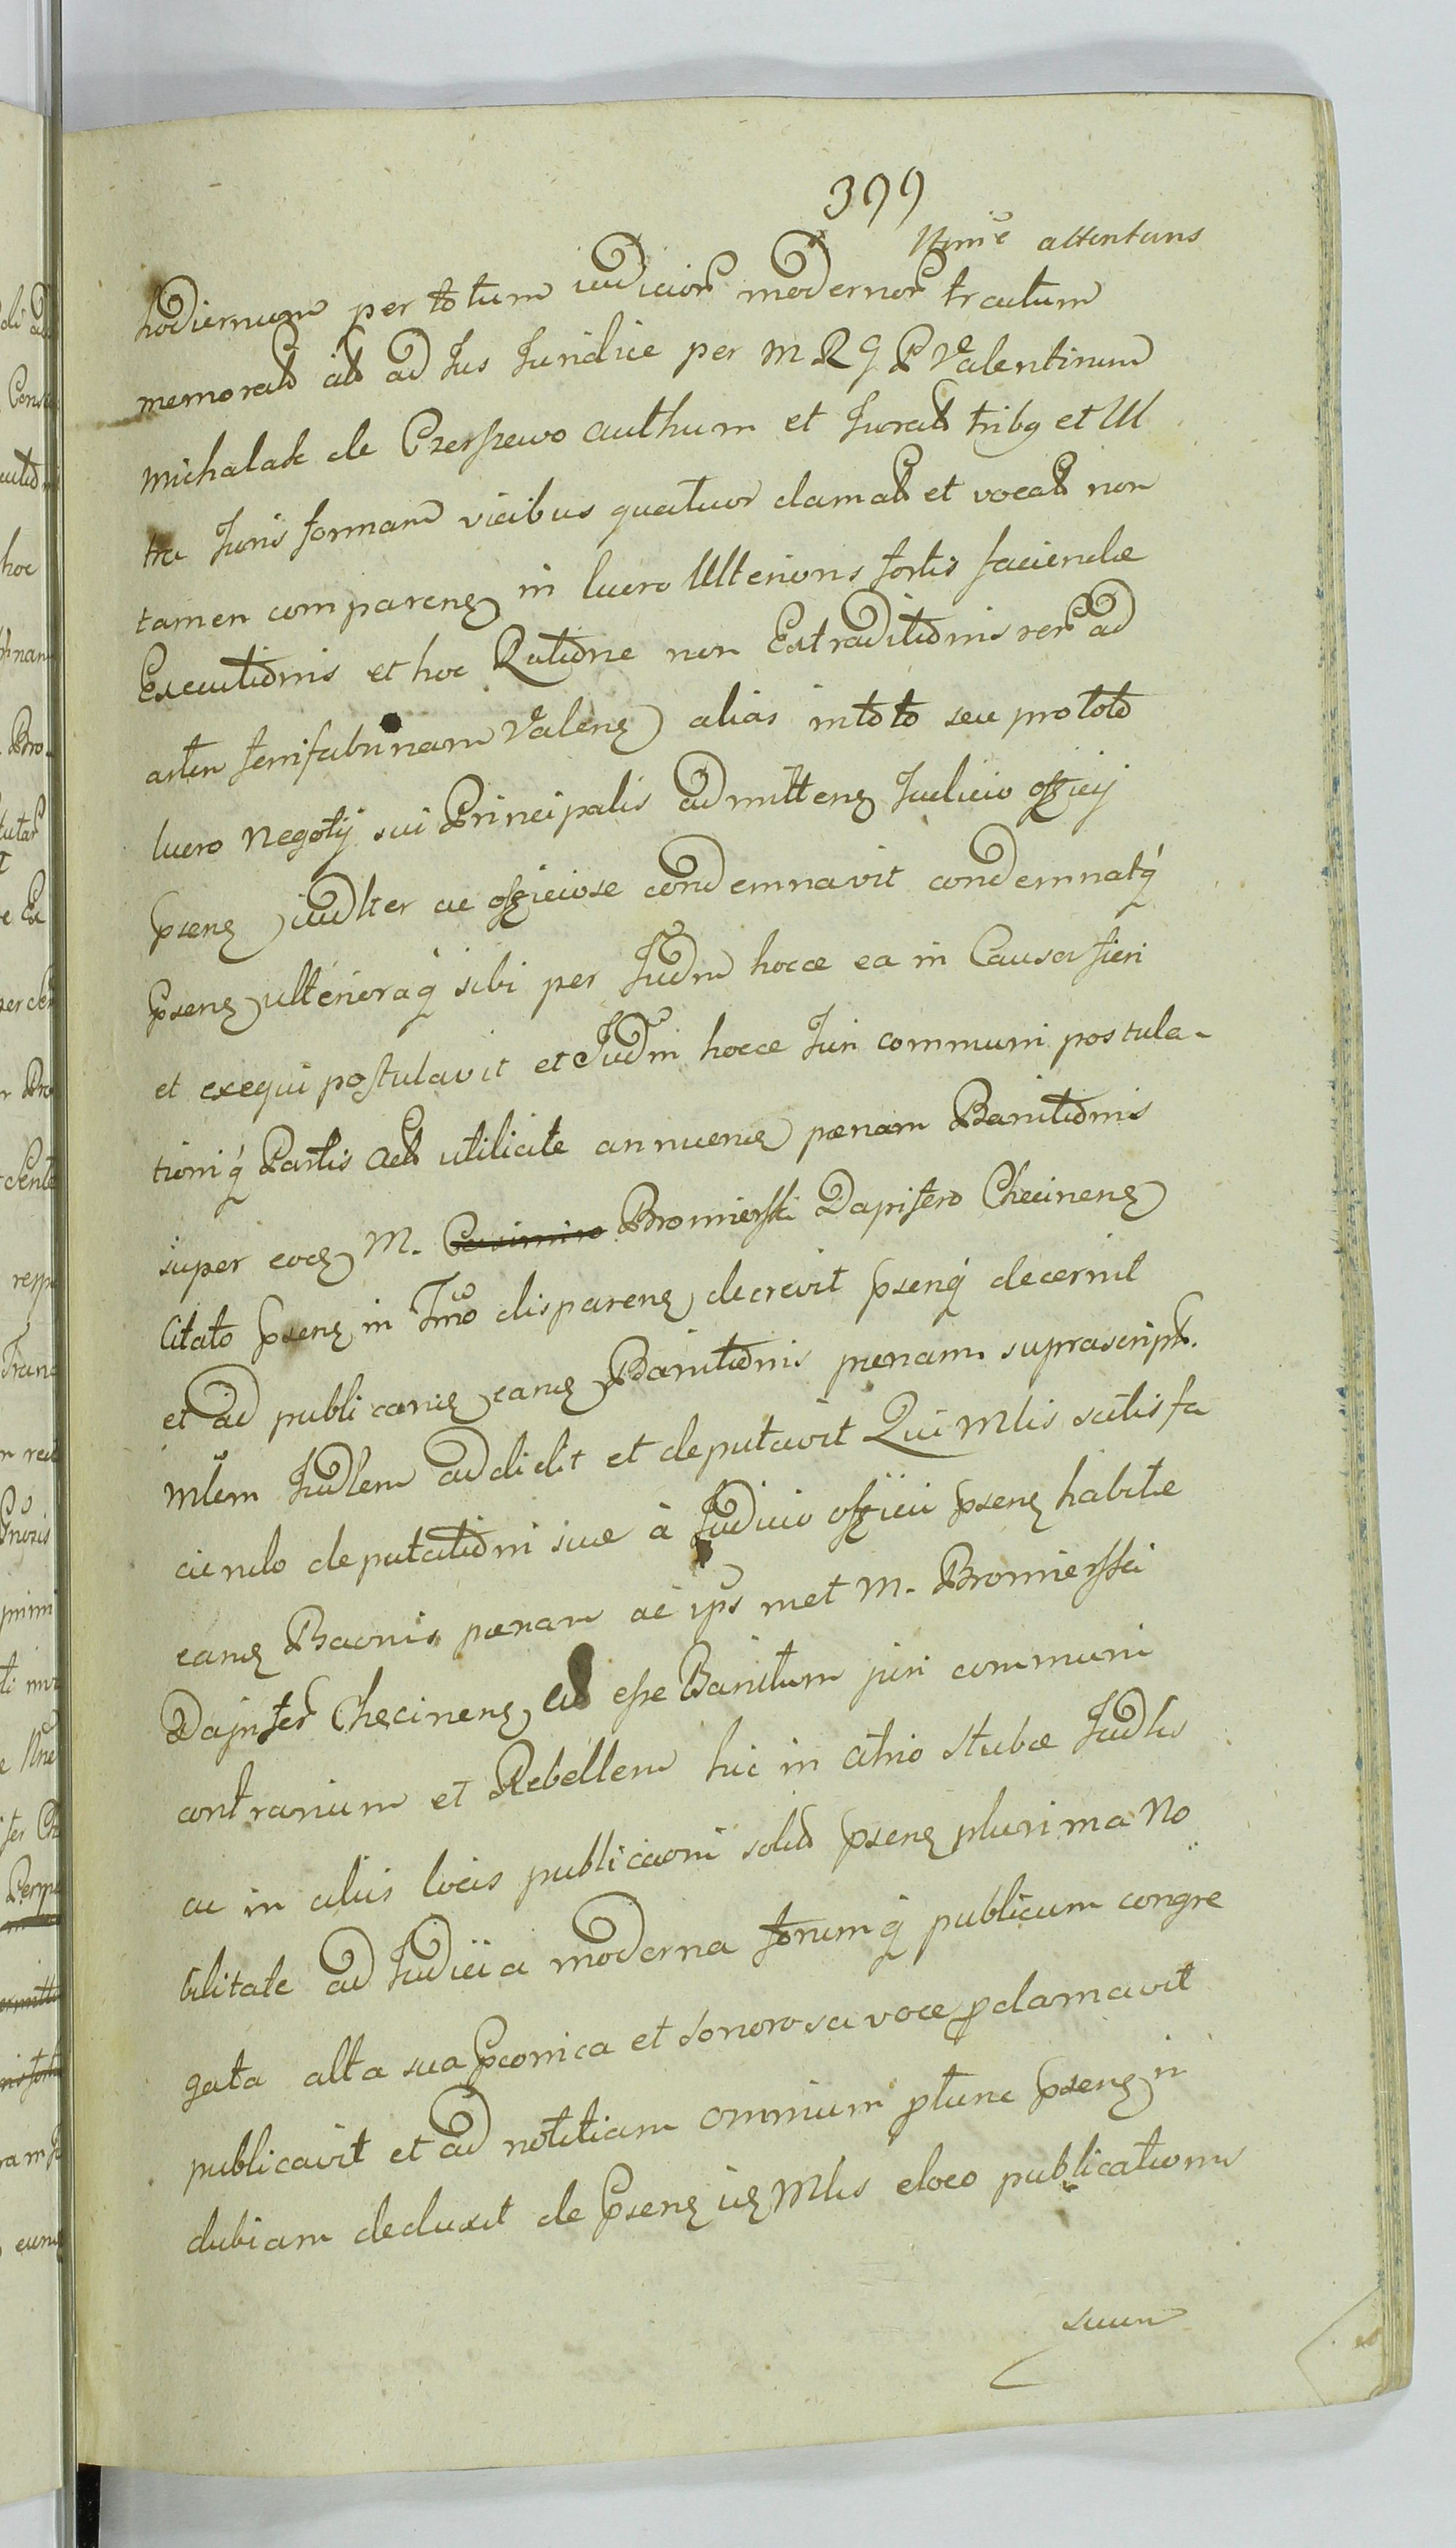 399
attentans
hodiernum per totum iudicior modernor tractum
memorat ad Jus Juridice per M R G P Valentinum
Michalak de Czerszewo authum et Jurat trib9 et Ul
tra Juris formam vicibus quatuor clamat et vocat non
tamen comparen in lucro Ulterioris fortis faciendæ
Executionis et hoc Ratione non Extraditionis rer ad
artem Valen alias in toto seu pro toto
lucro Negotij sui Principalis admitten Judicio officij
psen iudlter ac officiose condemnavit condemnatq
psen ulterioraq sibi per Judm hocce ea in Causa fieri
et exequi postulavit et Judm hocce Juri communi postula-
tioniq Partis Act utilicite annuens pænam Banitionis
super eod M. Casimiro Bromierski Dapifero Checinen
Citato psen in Tmo disparen decrevit psenq decernit
et ad publicand eand Banitionis pænam suprascript.
Mlem Judlem addidit et deputavit Qui Mlis satisfa
ciendo deputationi suæ à Judicio officii psen habitæ
eand Baonis pænam ac ips met M. Bromierski
Dapifer Checinen esse Banitum juri communi
contrarium et Rebellem hic in atrio stubæ Judlis
ac in aliis locis publicaoni solit psen plurima No
bilitate ad Judicia moderna forumq publicum congre
gata alta sua pconica et sonorosa voce pclamavit
publicavit et ad notitiam omnium ptunc psen in
dubiam deduxit de psen Mlis eloco publicationis
suum